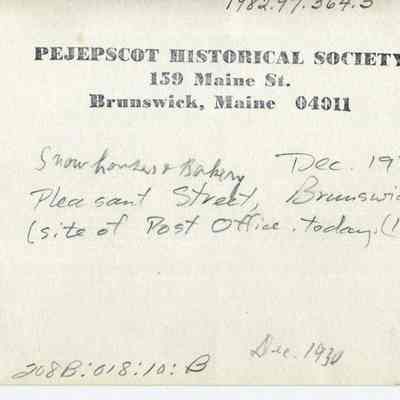 1982.97.364.3
PEJEPSCOT HISTORICAL SOCIETY
159 Maine St.
Brunswick, Maine 04011
Snow houses & Bakery Dec. 19
Pleasant Street, Brunswi
(site of Post Office. today. (1
Dec. 1930
208B:018:10:B